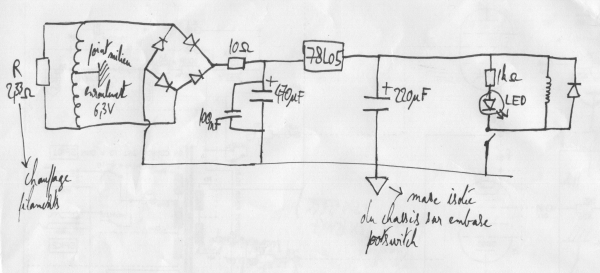 R
2,33Ω
point milieu
enroulement
6,3V
10Ω
78L05
+
470µF
100nF
+
220µF
1kΩ
LED
chauffage
filaments
masse isolée
du chassis sur embase
footswitch